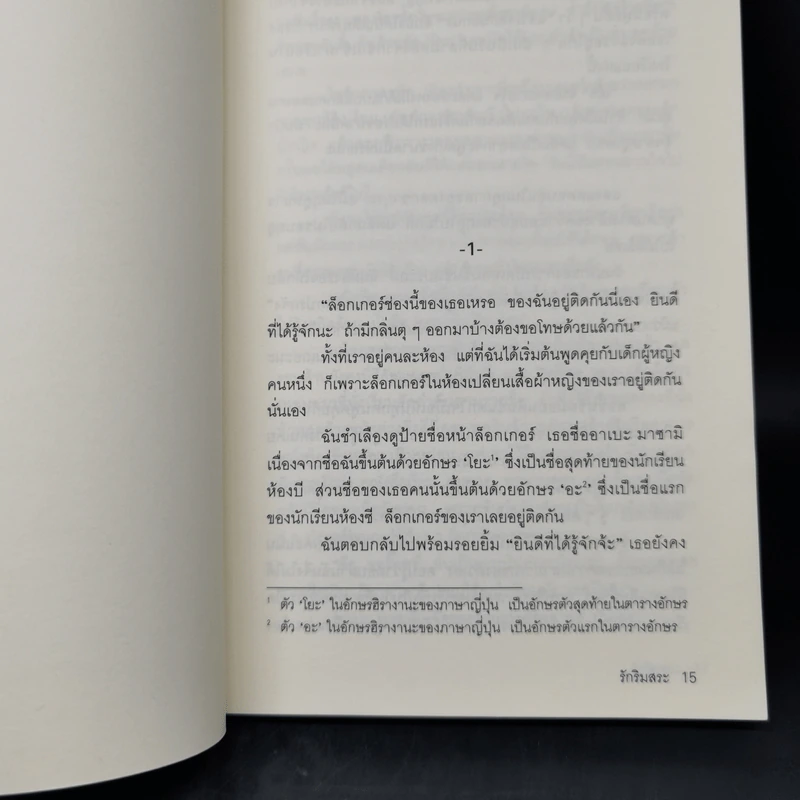 -1-
“ล็อกเกอร์ช่องนี้ของเธอเหรอ ของฉันอยู่ติดกันนี่เอง ยินดี
ที่ได้รู้จักนะ ถ้ามีกลิ่นตุ ๆ ออกมาบ้างต้องขอโทษด้วยแล้วกัน”
ทั้งที่เราอยู่คนละห้อง แต่ที่ฉันได้เริ่มต้นพูดคุยกับเด็กผู้หญิง
คนหนึ่ง ก็เพราะล็อกเกอร์ในห้องเปลี่ยนเสื้อผ้าหญิงของเราอยู่ติดกัน
นั่นเอง
ฉันชำเลืองดูป้ายชื่อหน้าล็อกเกอร์ เธอชื่ออาเบะ มาซามิ
เนื่องจากชื่อฉันขึ้นต้นด้วยอักษร ‘โยะ¹’ ซึ่งเป็นชื่อสุดท้ายของนักเรียน
ห้องบี ส่วนชื่อของเธอคนนั้นขึ้นต้นด้วยอักษร ‘อะ²’ ซึ่งเป็นชื่อแรก
ของนักเรียนห้องซี ล็อกเกอร์ของเราเลยอยู่ติดกัน
ฉันตอบกลับไปพร้อมรอยยิ้ม “ยินดีที่ได้รู้จักจ้ะ” เธอยังคง
¹ ตัว ‘โยะ’ ในอักษรฮิรางานะของภาษาญี่ปุ่น เป็นอักษรตัวสุดท้ายในตารางอักษร
² ตัว ‘อะ’ ในอักษรฮิรางานะของภาษาญี่ปุ่น เป็นอักษรตัวแรกในตารางอักษร
รักริมสระ 15